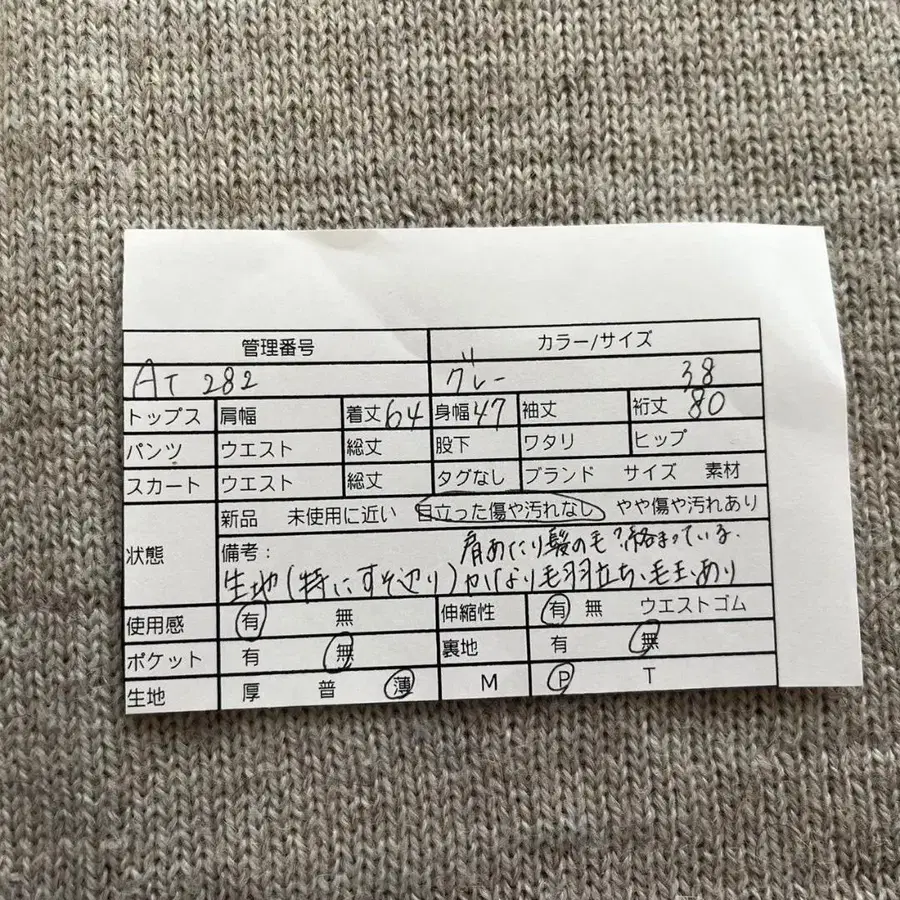 管理番号 カラー/サイズ
AT 282 グレー 38
トップス 肩幅 着丈 64 身幅 47 袖丈 裄丈 80
パンツ ウエスト 総丈 股下 ワタリ ヒップ
スカート ウエスト 総丈 タグなし ブランド サイズ 素材
状態 新品 未使用に近い 目立った傷や汚れなし やや傷や汚れあり
備考: 肩あたり髪の毛?絡まっている.
生地(特にすそ辺り)かなり毛羽立ち、毛玉あり
使用感 有 無 伸縮性 有 無 ウエストゴム
ポケット 有 無 裏地 有 無
生地 厚 普 薄 M P T